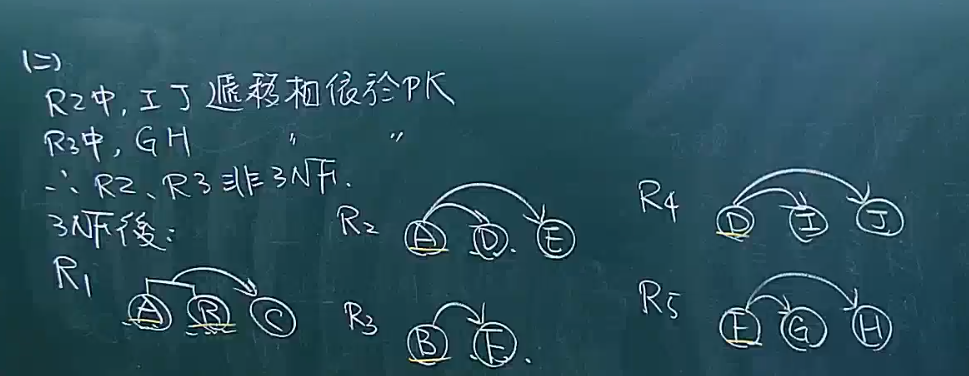 (二)
R2中, I J 遞移相依於PK
R3中, G H 〃 〃
∴ R2、R3非3NF.
3NF後:
R1 A B C
R2 A D. E
R3 B F.
R4 D I J
R5 F G H